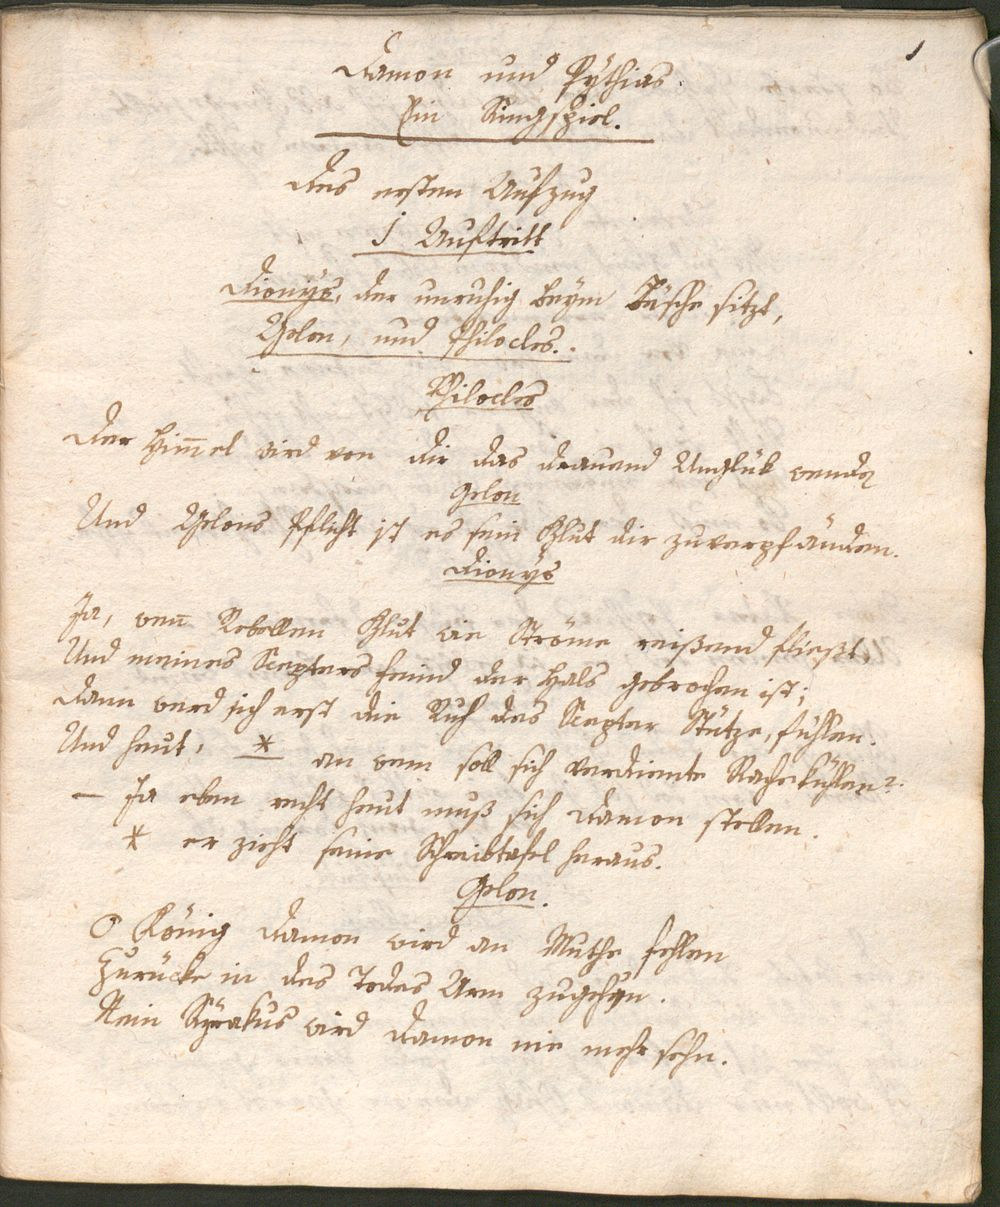 1
Damon und Pÿthias
Ein Singspiel.
Des ersten Aufzug
1 Auftritt
Dionÿs, der unruhig beÿm Tische sitzt,
Gelon, und Philocles.
Philocles
Der Him̅el wird von dir das drauend Unglük wenden
Gelon
Und Gelons Pflicht ist es sein Blut dir zuverpfänden.
Dionÿs
Ja, wen̅ Rebellen Blut wie Ströme reißend fließt
Und meines Scepters Feind der Hals gebrochen ist;
Dann werd ich erst die Ruh des Scepter Stütze, fühlen.
Und heut, * an wem soll sich verdiente Rache kühlen?
– Ja eben recht heut muß sich Damon stellen.
* er zieht seine Schreibtafel heraus.
Gelon.
O König Damon wird an Muthe fehlen
Zurücke in des Todes Arm zugehen.
Nein Sÿrakus wird Damon nie mehr sehn.